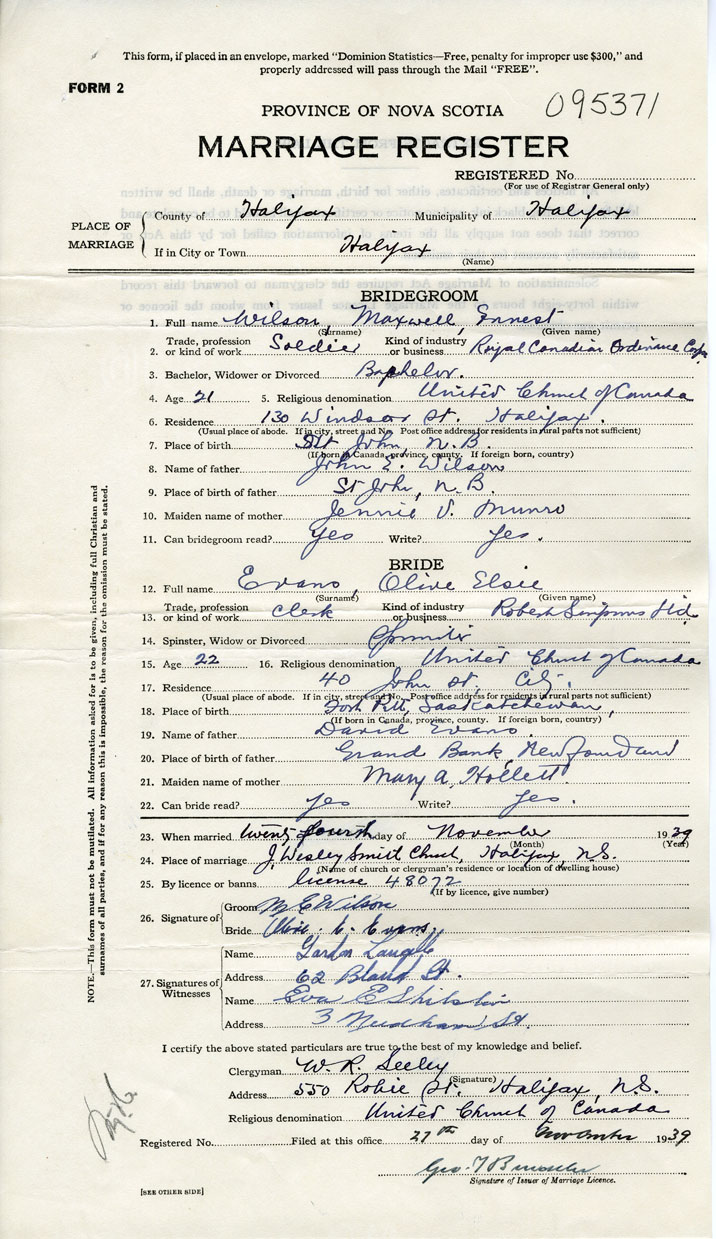 This form, if placed in an envelope, marked "Dominion Statistics—Free, penalty for improper use $300," and
properly addressed will pass through the Mail "FREE".
FORM 2
PROVINCE OF NOVA SCOTIA 095371
MARRIAGE REGISTER
REGISTERED No.
(For use of Registrar General only)
PLACE OF MARRIAGE
County of Halifax Municipality of Halifax
If in City or Town Halifax
(Name)
BRIDEGROOM
1. Full name Wilson, Maxwell, Ernest
(Surname) (Given name)
2. Trade, profession or kind of work Soldier Kind of industry or business Royal Canadian Ordinance Corps
3. Bachelor, Widower or Divorced Bachelor.
4. Age 21 5. Religious denomination United Church of Canada
6. Residence 130 Windsor St. Halifax.
(Usual place of abode. If in city, street and No. Post office address for residents in rural parts not sufficient)
7. Place of birth St John, N.B.
(If born in Canada, province, county. If foreign born, country)
8. Name of father John E. Wilson
9. Place of birth of father St John, N.B.
10. Maiden name of mother Jennie V. Munro
11. Can bridegroom read? Yes Write? Yes.
BRIDE
12. Full name Evans, Olive Elsie
(Surname) (Given name)
13. Trade, profession or kind of work Clerk Kind of industry or business Robert Simpsons Ltd
14. Spinster, Widow or Divorced Spinster
15. Age 22 16. Religious denomination United Church of Canada
17. Residence 40 John St, City.
(Usual place of abode. If in city, street and No. Post office address for residents in rural parts not sufficient)
18. Place of birth Fort Pitt, Saskatchewan,
(If born in Canada, province, county. If foreign born, country)
19. Name of father David Evans.
20. Place of birth of father Grand Bank, Newfoundland
21. Maiden name of mother Mary A, Hollett.
22. Can bride read? Yes Write? Yes.
23. When married twenty fourth day of November 1939
(Month) (Year)
24. Place of marriage J. Wesley Smith Church, Halifax, N.S.
(Name of church or clergyman's residence or location of dwelling house)
25. By licence or banns license 48072
(If by licence, give number)
26. Signature of
Groom M E Wilson
Bride Olive E. Evans.
27. Signatures of Witnesses
Name Gordon
Address 62 Bland St.
Name Eva E
Address 3 Needham St.
I certify the above stated particulars are true to the best of my knowledge and belief.
Clergyman W. R. Seeley
(Signature)
Address 550 Robie St. Halifax, N.S.
Religious denomination United Church of Canada
Registered No. Filed at this office 27th day of November 1939
Geo.
Signature of Issuer of Marriage Licence.
[SEE OTHER SIDE]
NOTE.—This form must not be mutilated. All information asked for is to be given, including full Christian and
surnames of all parties, and if for any reason this is impossible, the reason for the omission must be stated.